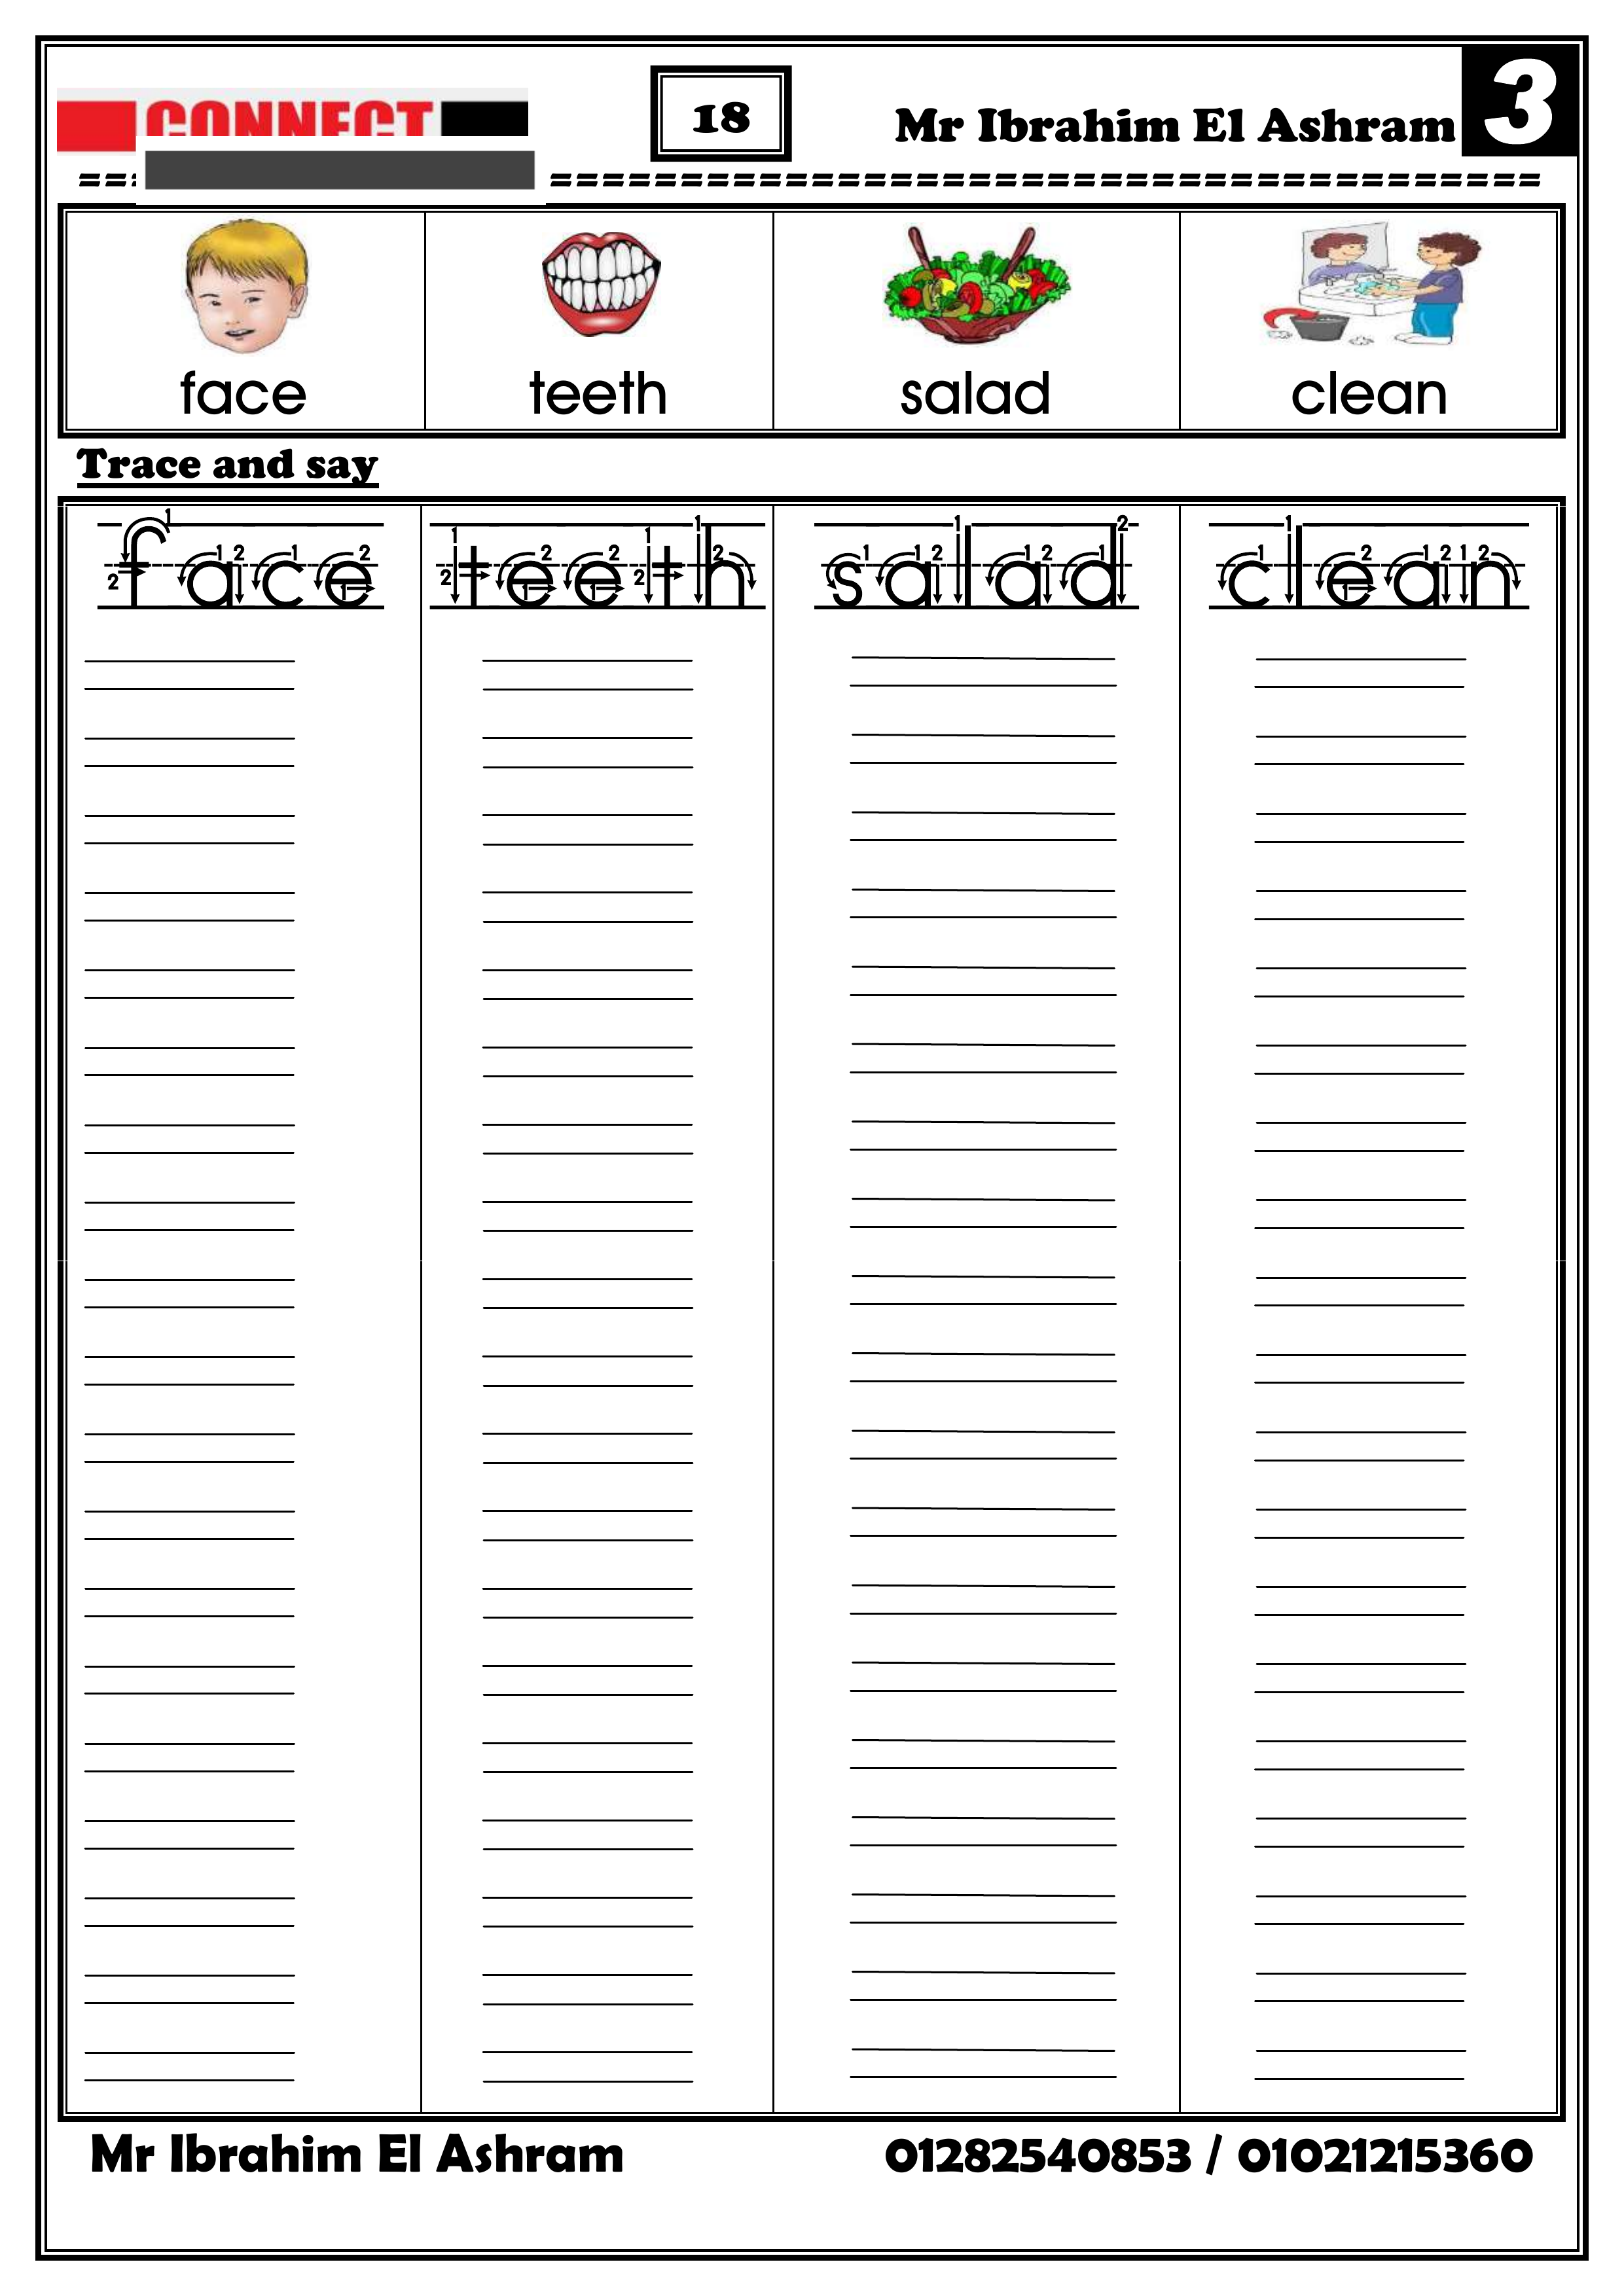 CONNECT
18
Mr Ibrahim El Ashram
3
face teeth salad clean
Trace and say
face teeth salad clean
Mr Ibrahim El Ashram 01282540853 / 01021215360